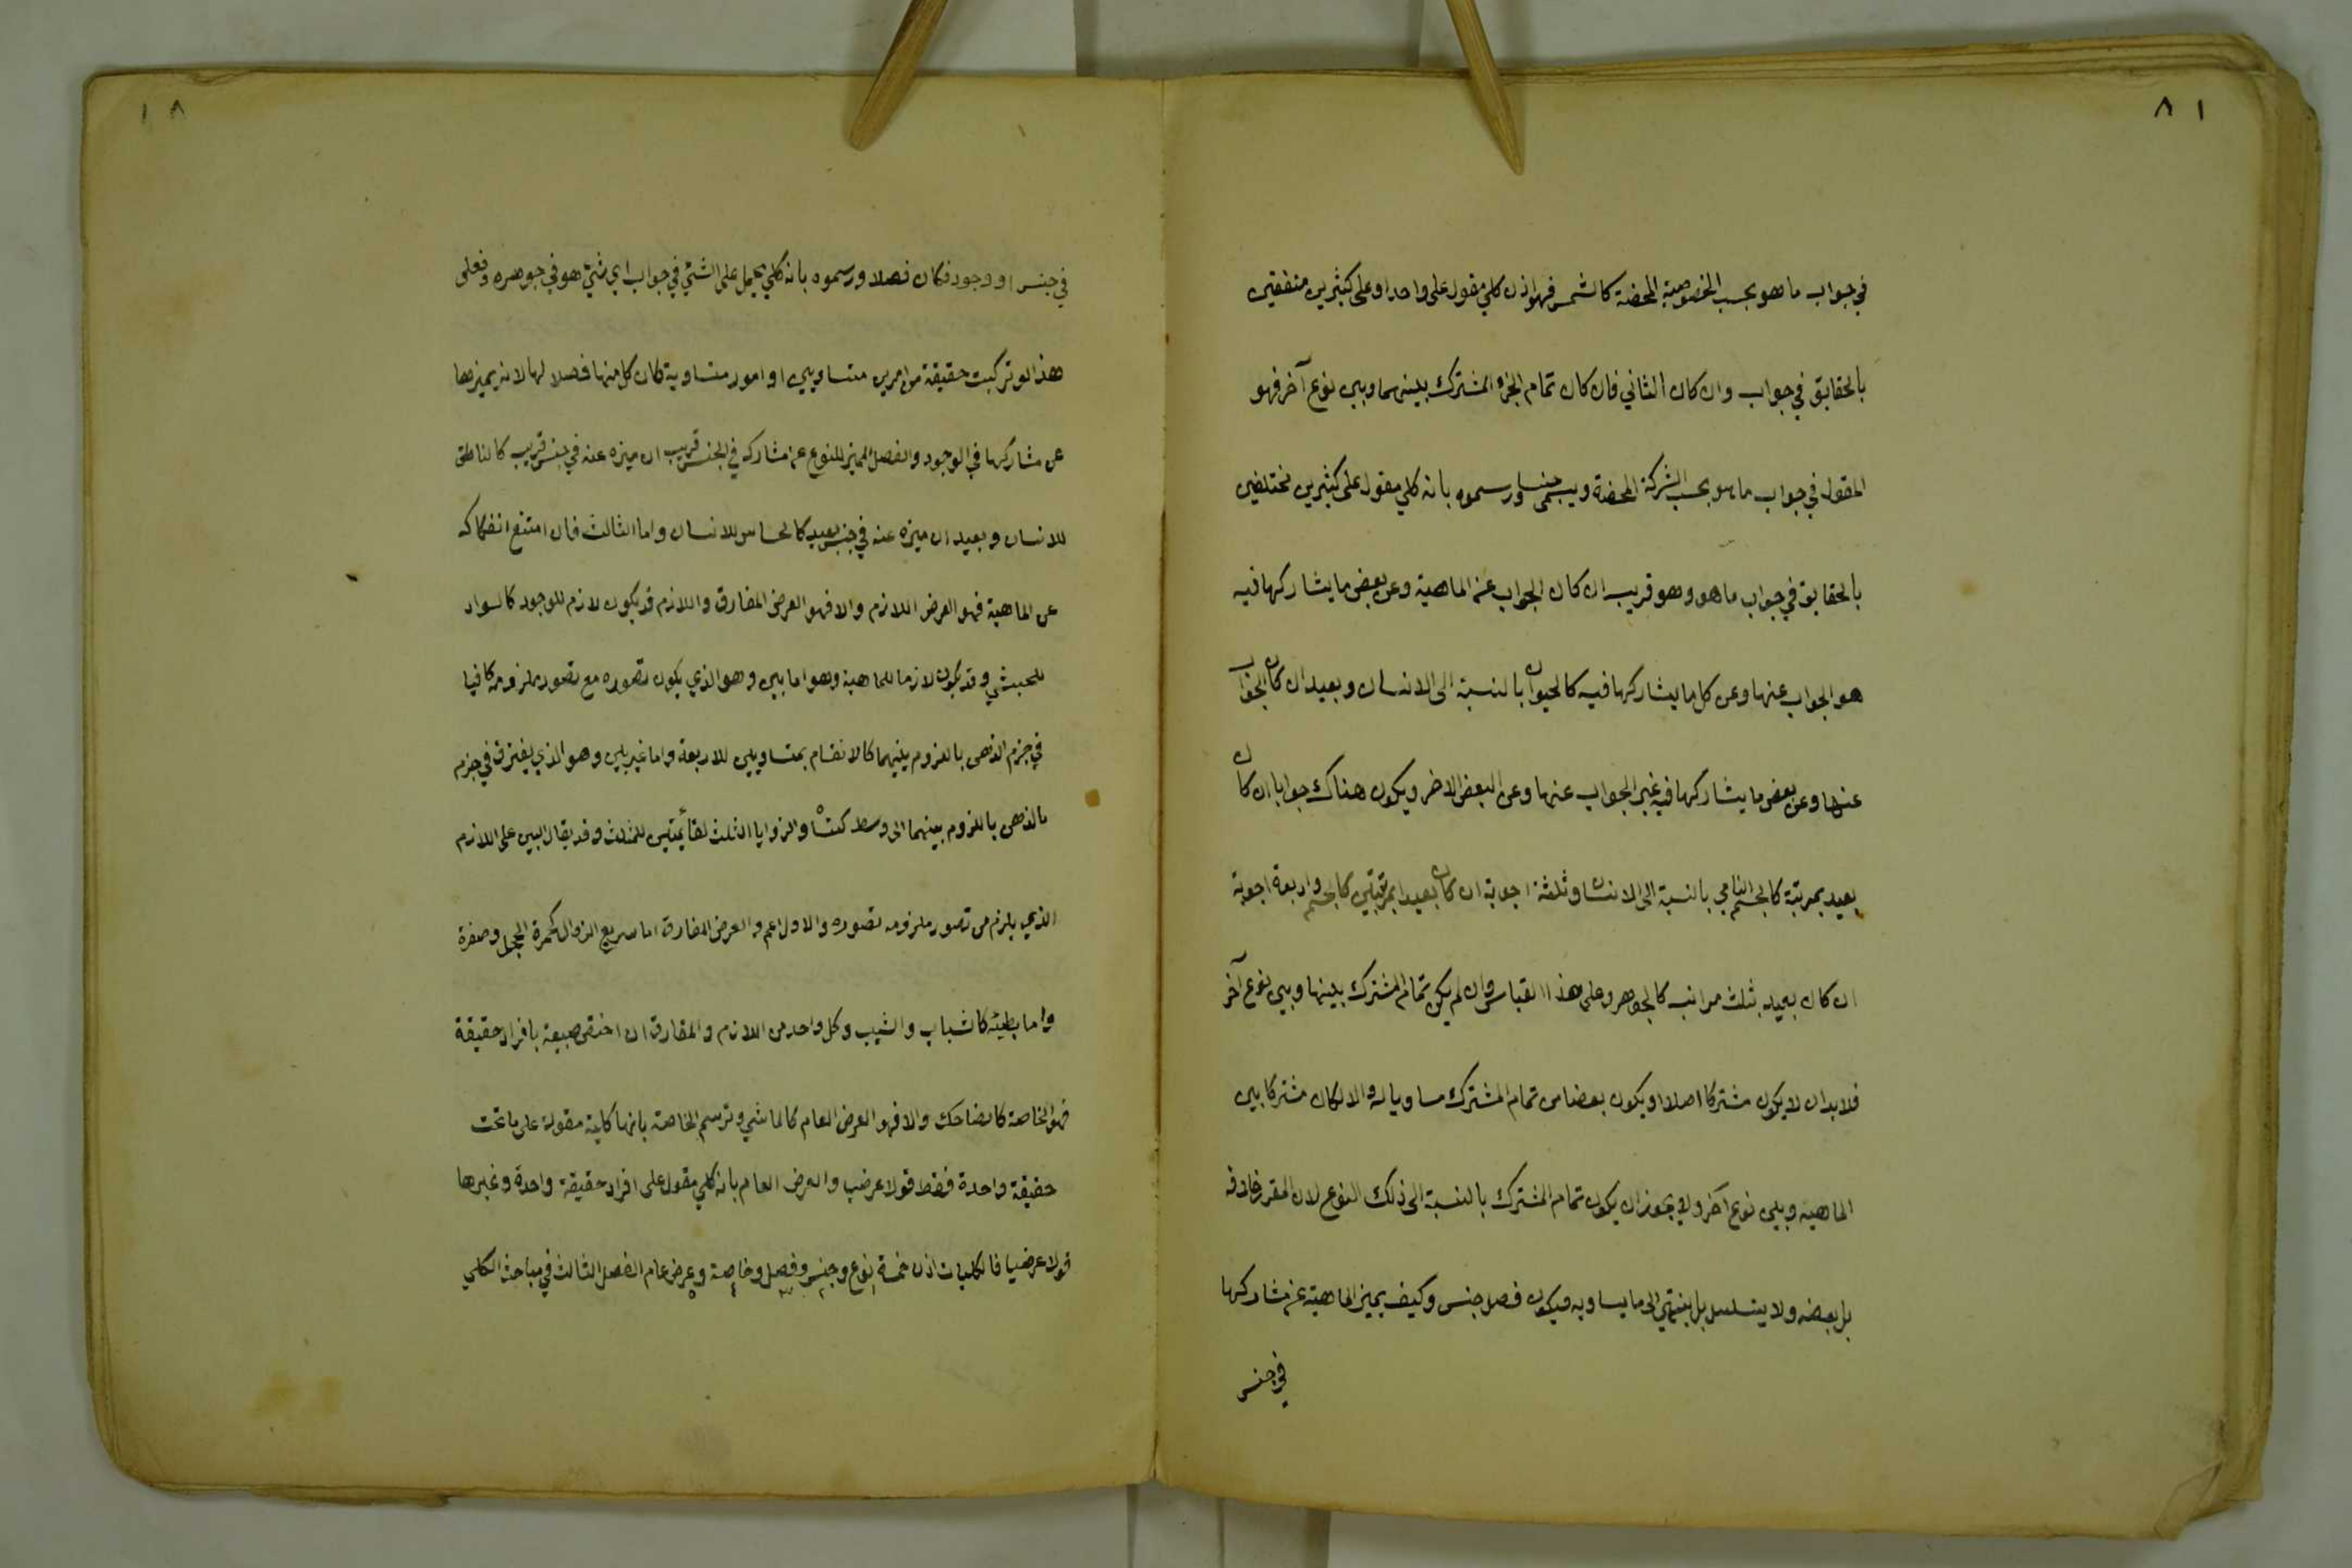 ٨١
في جواب ما هو بحسب الخصوصية المحضة كالشمس فهو اذن كلي مقول على واحد او على كثيرين متفقين
بالحقايق في جواب وان كان الثاني فان كان تمام الجزء المشترك بينهما وبين نوع آخر فهو
المقول في جواب ما هو بحسب الشركة المحضة ويسمى جنسا ورسموه بانه كلي مقول على كثيرين مختلفين
بالحقايق في جواب ما هو وهو قريب ان كان الجواب عن الماهية وعن بعض ما يشاركها فيه
هو الجواب عنها وعن كل ما يشاركها فيه كالحيوان بالنسبة الى الانسان وبعيد ان كان الجواب
عنها وعن بعض ما يشاركها فيه غير الجواب عنها وعن البعض الاخر ويكون هناك جوابا ان كان
بعيد بمرتبة كالجسم النامي بالنسبة الى الانسان وثلثة اجوبة ان كان بعيدا بمرتبتين كالجسم واربعة اجوبة
ان كان بعيد بثلث مراتب كالجوهر وعلى هذا القياس وان لم يكن تمام المشترك بينها وبين نوع آخر
فلا بد ان لا يكون مشتركا اصلا او يكون بعضا من تمام المشترك مساويا له والا لكان مشتركا بين
الماهية وبين نوع آخر ولا يجوز ان يكون تمام المشترك بالنسبة الى ذلك النوع لان المقرر خلافه
بل بعضه ولا يتسلسل بل ينتهي الى ما يساويه فيكون فصل جنس وكيف يميز الماهية عن مشاركها
في جنس
١٨
في جنس او وجود فكان فصلا ورسموه بانه كلي يحمل على الشئ في جواب اي شئ هو في جوهره فعلى
هذا لو تركبت حقيقة من امرين متساويين او امور متساوية كان كل منها فصلا لها لانه يميزها
عن مشاركها في الوجود والفصل المميز للنوع عن مشاركه في الجنس قريب ان ميزه عنه في جنس قريب كالناطق
للانسان وبعيد ان ميزه عنه في جنس بعيد كالحاس للانسان واما الثالث فان امتنع انفكاكه
عن الماهية فهو العرض اللازم والا فهو العرض المفارق واللازم قد يكون لازم للوجود كالسواد
للحبشي وقد يكون لازما للماهية وهو اما بين وهو الذي يكون تصوره مع تصور ملزومه كافيا
في جزم الذهن باللزوم بينهما كالانقسام بمتساويين للاربعة واما غير بين وهو الذي يفتقر في جزم
الذهن باللزوم بينهما الى وسط والزوايا الثلث لقائمتين للمثلث وقد يقال البين على اللازم
الذي يلزم من تصور ملزومه تصوره والاول اعم والعرض المفارق اما سريع الزوال كحمرة الخجل وصفرة
واما بطيئه كالشباب والشيب وكل واحد من اللازم والمفارق ان اختص بافراد حقيقة
فهو الخاصة كالضاحك والا فهو العرض العام كالماشي وترسم الخاصة بانها كلية مقولة على ما تحت
حقيقة واحدة فقط قولا عرضيا والعرض العام بانه كلي مقول على افراد حقيقة واحدة وغيرها
قولا عرضيا فالكليات اذن خمسة نوع وجنس وفصل وخاصة وعرض عام الفصل الثالث في مباحث الكلي